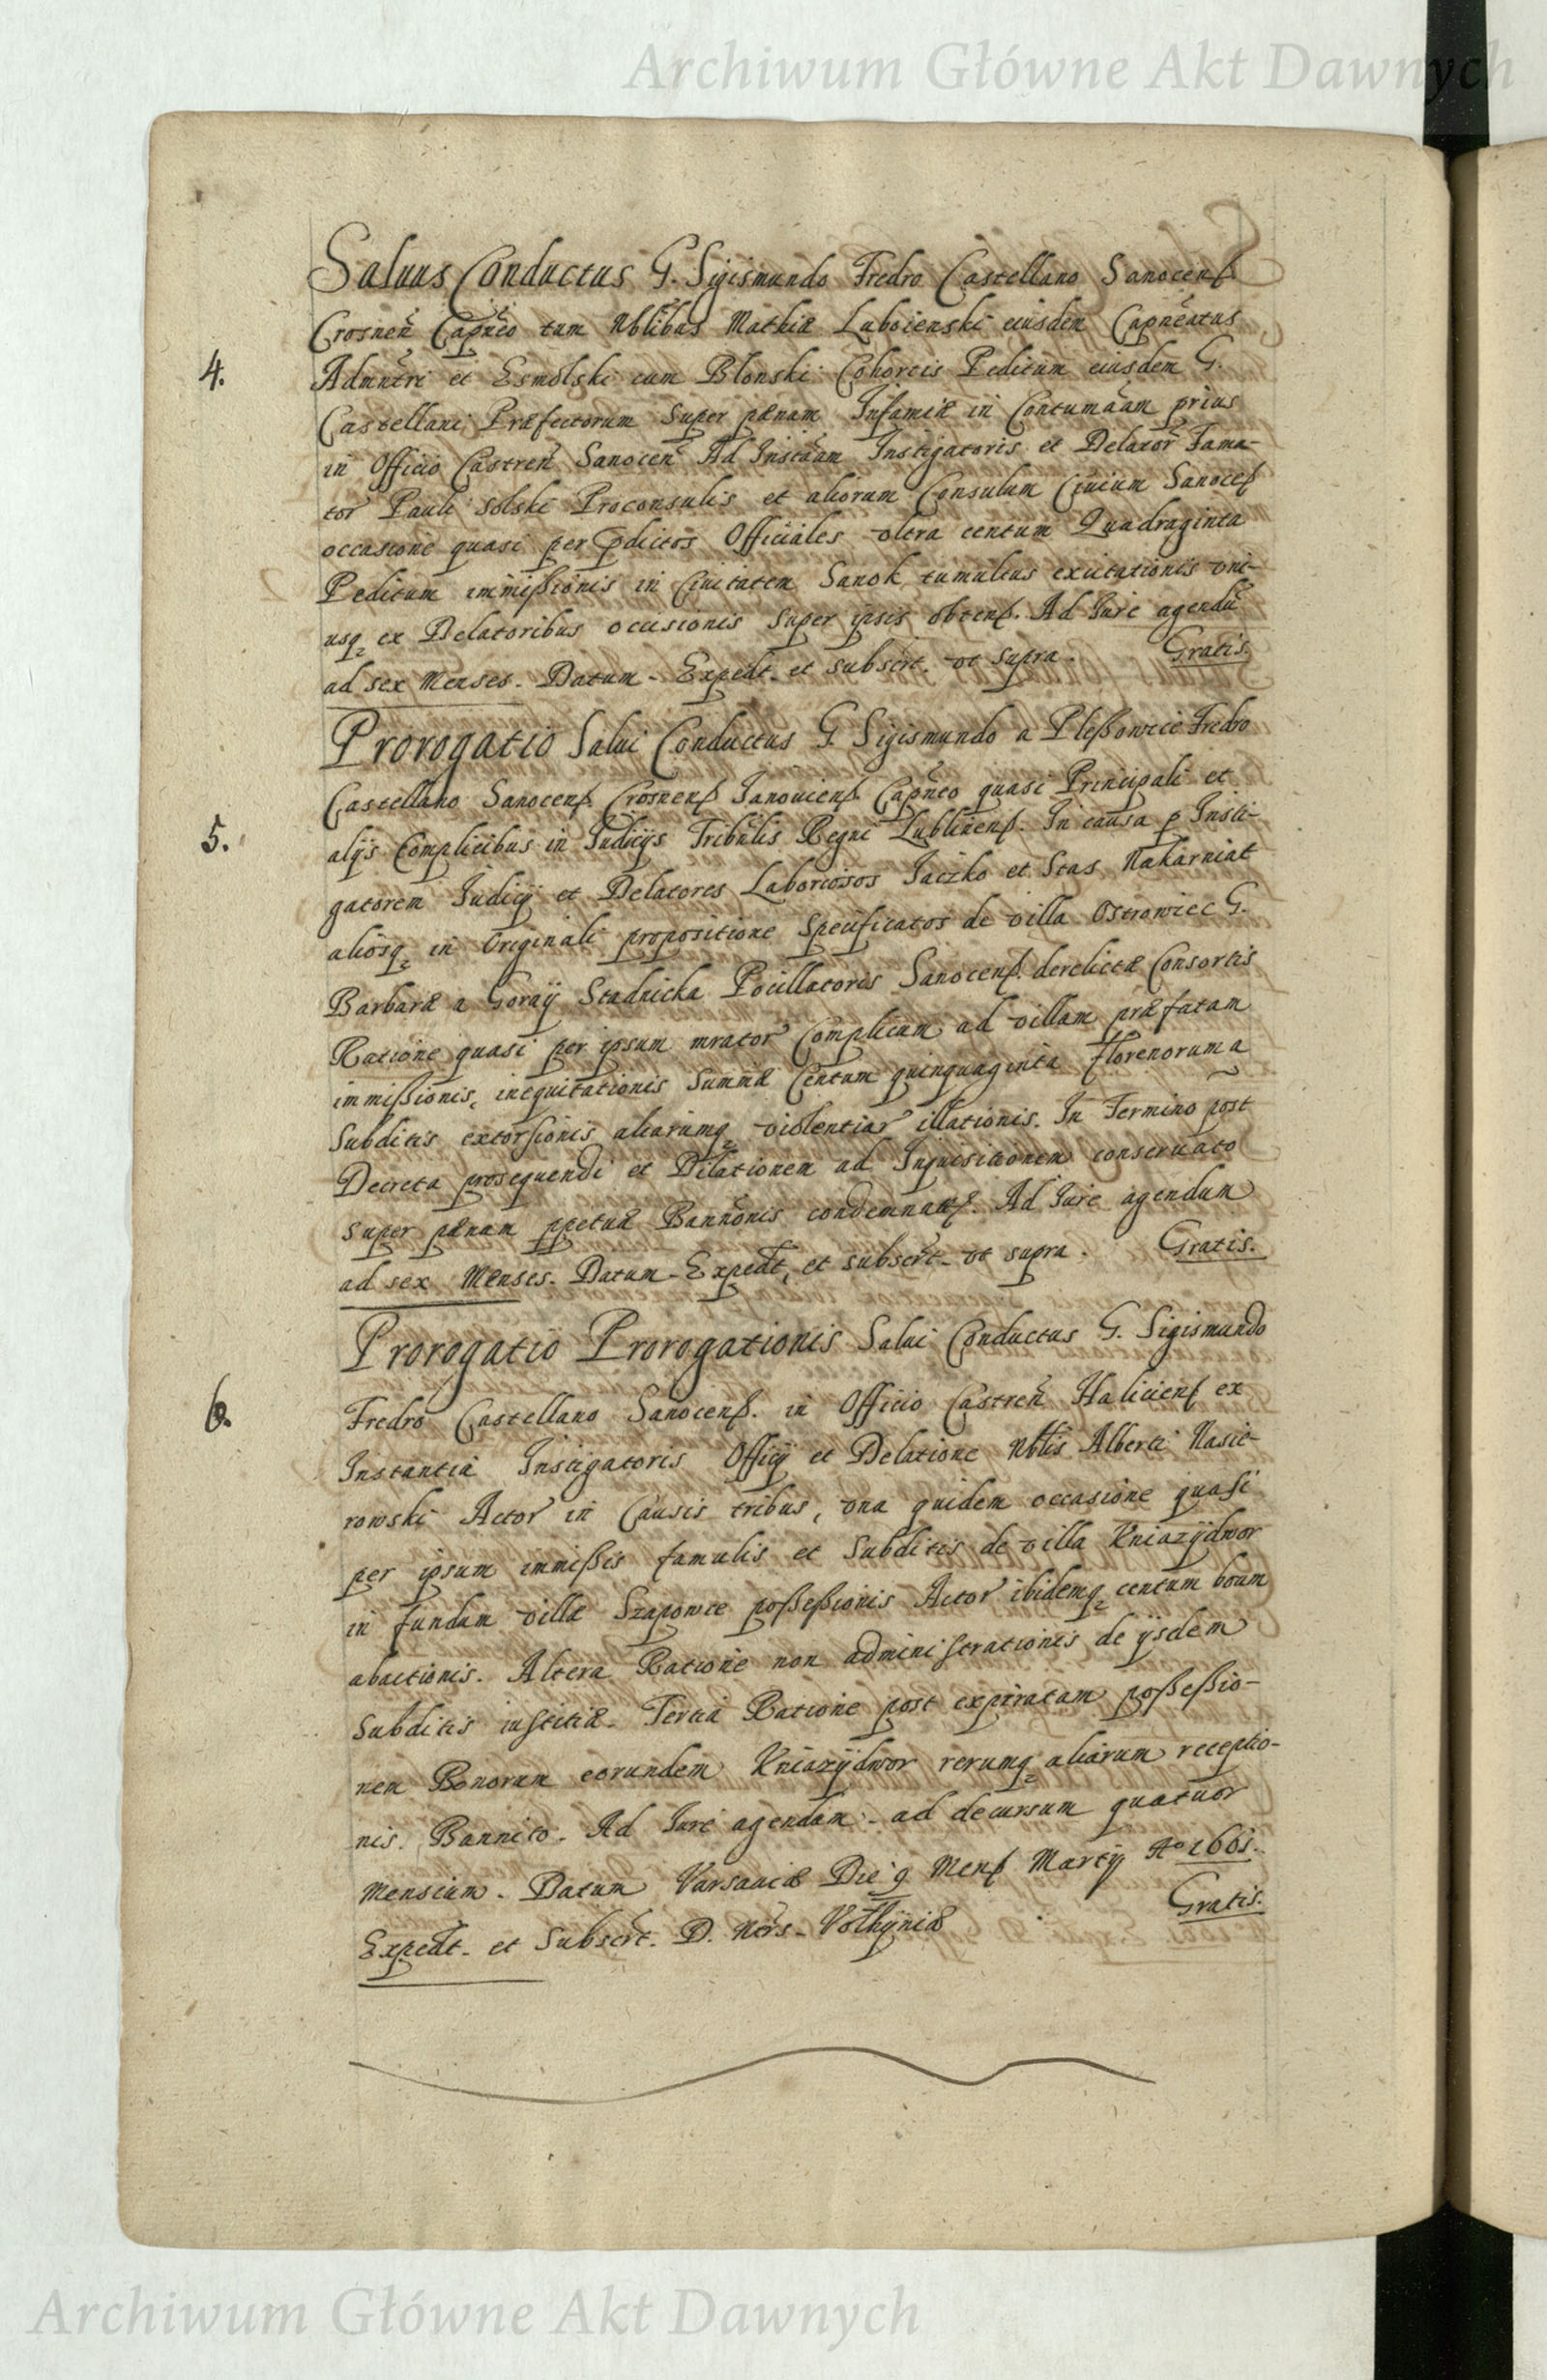 Archiwum Główne Akt Dawnych
Saluus Conductus G. Sigismundo Fredro Castellano Sanocens̃
Crosnen̄ Capn̄eo tum Nblibus Mathiæ Luboienski eiusdem Capn̄eatus
4.
Admn̄tri et Esmolski cum Blonski Cohortis Peditum eiusdem G.
Castellani Præfectorum Super pænam Infamiæ in Contumaāam prius
in Officio Castren̄ Sanocen̄ Ad Instāam Instigatoris et Delator Fama-
tor Pauli Solski Proconsulis et aliorum Consulum Ciuium Sanocen̄
occasione quasi per p̄dictos Officiales vltra centum Quadraginta
Peditum immißionis in Ciuitatem Sanok tumultus excitationis vni-
usq; ex Delatoribus occisionis Super ipsis obtens̃. Ad Iure agendū
ad sex Menses. Datum - Expedt. et subscrt. vt supra. Gratis.
Prorogatio Salui Conductus G. Sigismundo a Pleßowice Fredro
Castellano Sanocens̃. Crosnens̃ Janouiens̃. Capn̄eo quasi Principali et
5.
alijs Complicibus in Iudicijs Tribn̄lis Regni Lublinens̃. In causa p Insti-
gatorem Iudicij et Delatores Laboriosos Jaczko et Stas Nakarniat
aliosq; in Originali propositione Specificatos de villa Ostrowiec G.
Barbaræ a Goraij Stadnicka Pocillatoris Sanocens̃. derelictæ Consortis
Ratione quasi per ipsum mrator Complicum ad villam præfatam
immißionis, inequitationis Summæ Centum quinquaginta florenorum a
Subditis extorsionis aliarumq; violentiar illationis. In Termino post
Decreta prosequendi et Dilationem ad Inquisitionem conseruato
super pænam ppetuæ Bannōnis condemnats̃. Ad Iure agendum
ad sex Menses. Datum - Expedt, et subscrt. vt supra. Gratis.
Prorogatio Prorogationis Salui Conductus G. Sigismundo
6.
Fredro Castellano Sanocens̃. in Officio Castren̄ Haliciens̃ ex
Instantia Instigatoris Officij et Delatione Nblis Alberti Nasie-
rowski Actor in Causis tribus, vna quidem occasione quasi
per ipsum immißis famulis et Subditis de villa Kniazijdwor
in fundum villæ Szapowce poßeßionis Actor ibidemq; centum boum
abactionis. Altera Ratione non administrationis de ijsdem
Subditis iustitiæ. Tertia Ratione post expiratam poßeßio-
nem Bonorum eorundem Kniazijdwor rerumq; aliarum receptio-
nis. Bannito. Ad Iure agendum. ad decursum quatuor
Mensium. Datum Varsauiæ Die 9 Mens̃ Martij Ao 1661.
Expedt. et Subscrt. D. Nrs. Volhÿniæ Gratis.
Archiwum Główne Akt Dawnych